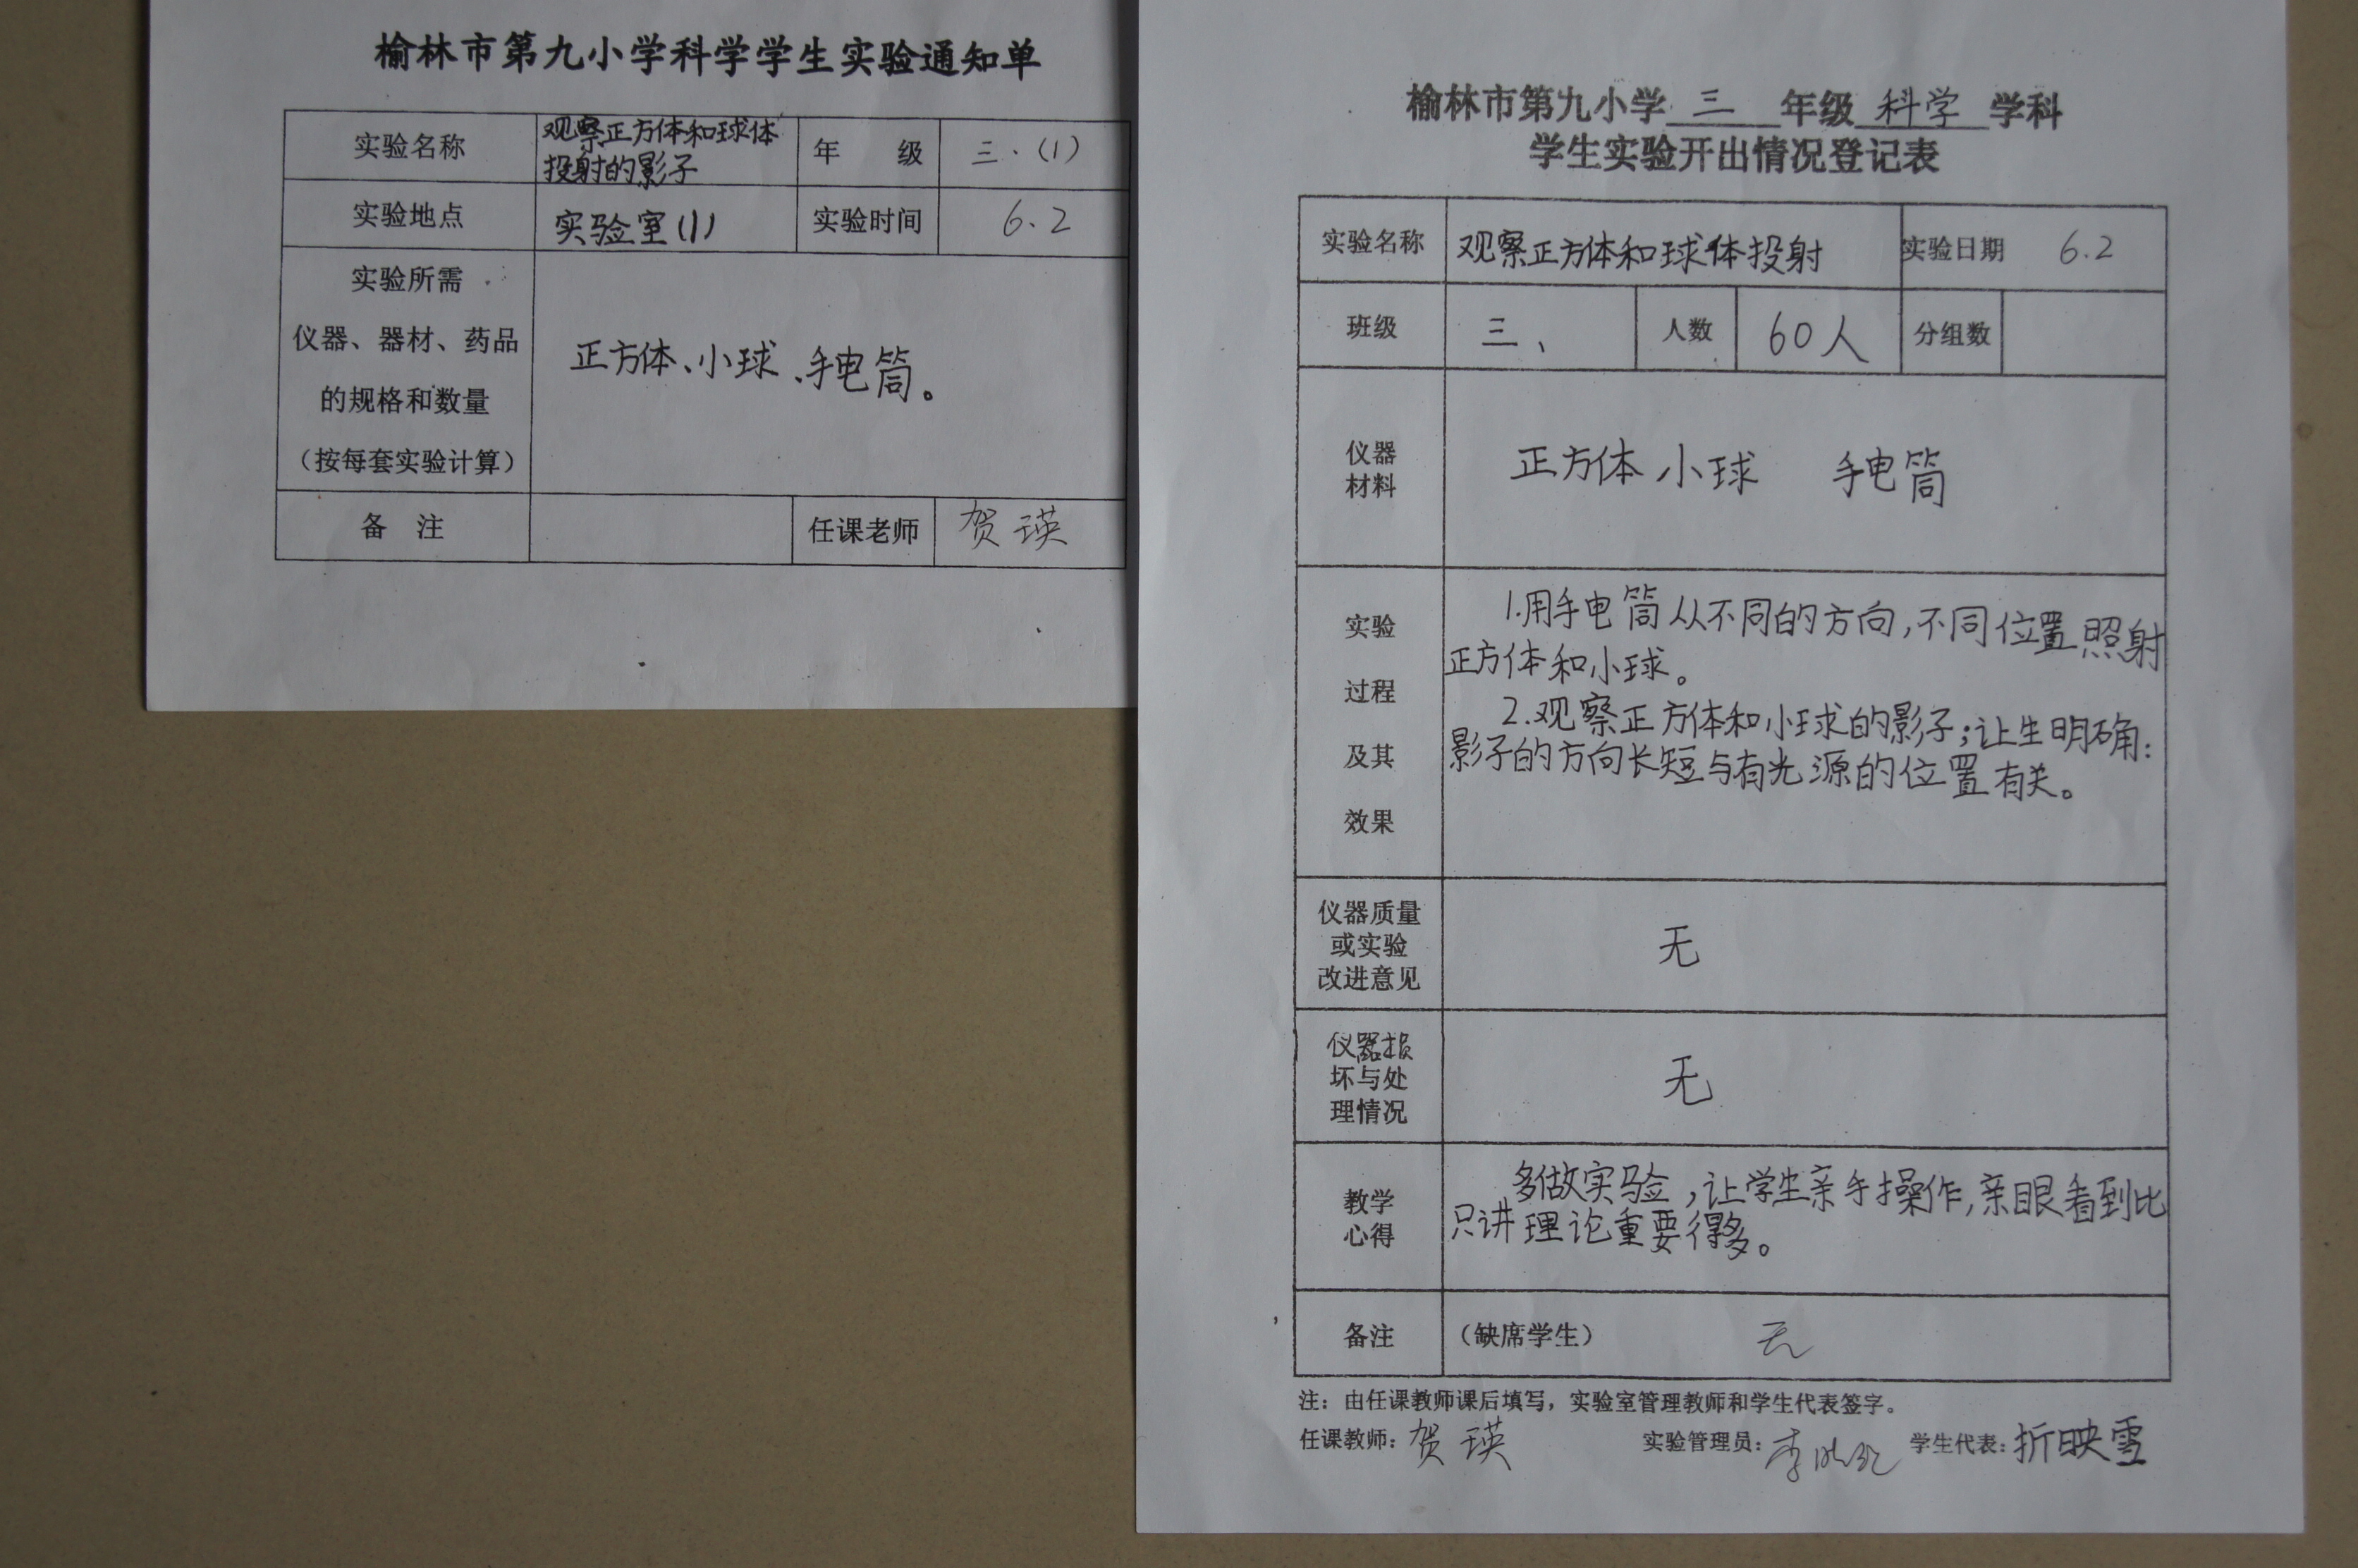 榆林市第九小学科学学生实验通知单
实验名称 观察正方体和球体
投射的影子 年 级 三·(1)
实验地点 实验室(1) 实验时间 6.2
实验所需
仪器、器材、药品
的规格和数量
(按每套实验计算)
正方体、小球、手电筒。
备 注 任课老师 贺瑛
榆林市第九小学 三 年级 科学 学科
学生实验开出情况登记表
实验名称 观察正方体和球体投射 实验日期 6.2
班级 三、 人数 60人 分组数
仪器
材料
正方体 小球 手电筒
实验
过程
及其
效果
1.用手电筒从不同的方向,不同位置照射
正方体和小球。
2.观察正方体和小球的影子;让生明确:
影子的方向长短与有光源的位置有关。
仪器质量
或实验
改进意见
无
仪器损
坏与处
理情况
无
教学
心得
多做实验,让学生亲手操作,亲眼看到比
只讲理论重要得多。
备注 (缺席学生) 无
注:由任课教师课后填写,实验室管理教师和学生代表签字。
任课教师:贺瑛 实验管理员: 学生代表:折映雪